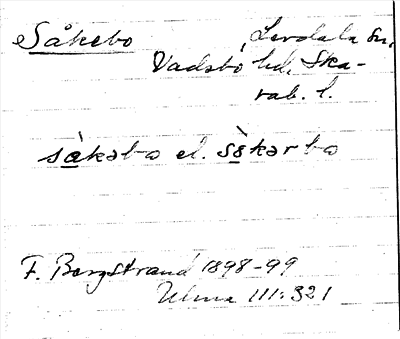 Såkebo Lerdala sn,
Vadsbo hd, Ska-
rab. l.
sàkəbo el. sòkərbo
F. Bergstrand 1898-99
Ulma 111:321